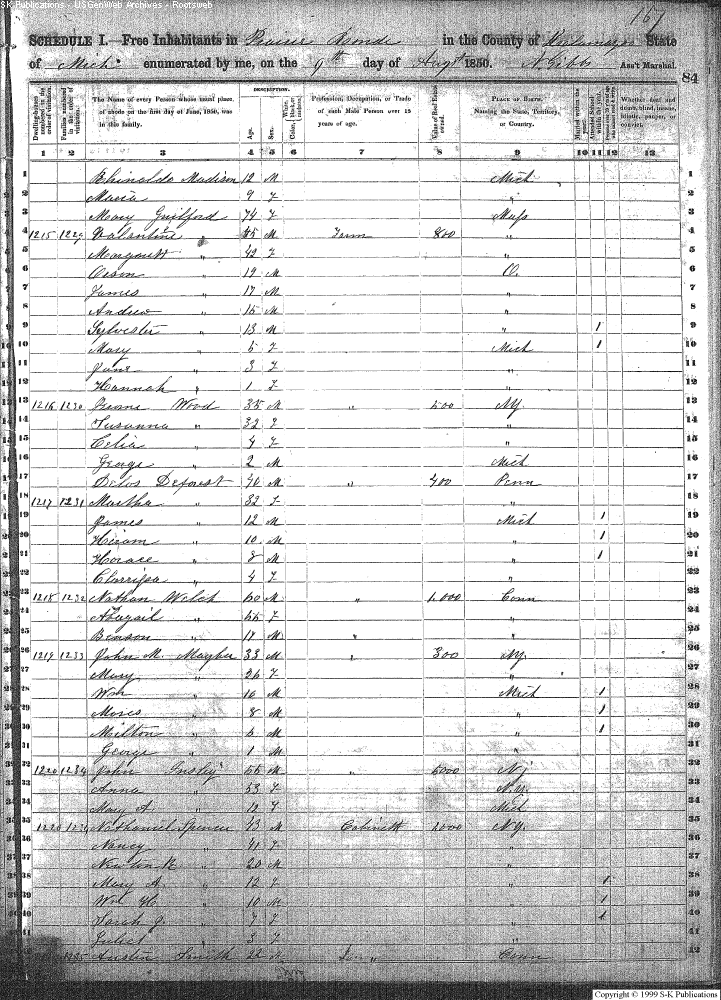 S-K Publications - USGenWeb Archives - Rootsweb
167
SCHEDULE I. Free Inhabitants in Prairie Ronde in the County of Kalamazoo State
of Mich: enumerated by me, on the 9th day of Augt 1850. N Gibbs Ass't Marshal.
84
DESCRIPTION.
Dwelling-houses numbered in the order of visitation.
Families numbered in the order of visitation.
The Name of every Person whose usual place of abode on the first day of June, 1850, was in this family.
Age.
Sex.
Profession, Occupation, or Trade of each Male Person over 15 years of age.
Value of Real Estate owned.
PLACE OF BIRTH. Naming the State, Territory, or Country.
Married within the year.
Attended School within the year.
Whether deaf and dumb, blind, insane, idiotic, pauper, or convict.
1 2 3 4 5 6 7 8 9 10 11 12 13
1 Madison 12 M Mich 1
2 Maria " 9 F " 2
3 Mary Guilford 74 F Mass 3
4 1215 1229 Valentine " 45 M Farm 800 " 4
5 Margarett " 42 F " 5
6 Orson " 19 M O. 6
7 James " 17 M " 7
8 Andrew " 15 M " 8
9 Sylvester " 13 M " 1 9
10 Mary " 5 F Mich 1 10
11 Jane " 3 F " 11
12 Hannah " 1 F " 12
13 1216 1230 Wood 35 M " 500 NY 13
14 Susanna " 32 F " 14
15 Celia " 4 F " 15
16 George " 2 M Mich 16
17 Delos Deforest 40 M " 400 Penn 17
18 1217 1231 Martha " 32 F " 18
19 James " 12 M Mich 1 19
20 Hiram " 10 M " 1 20
21 Horace " 8 M " 1 21
22 Clarrissa " 4 F " 22
23 1218 1232 Nathan Welch 60 M " 1,000 Conn 23
24 Abugail " 55 F " 24
25 Benson " 17 M " " 25
26 1219 1233 John M. 33 M " 300 NY. 26
27 Mary " 26 F " 27
28 Wm " 10 M Mich 1 28
29 Moses " 8 M " 1 29
30 Milton " 5 M " 1 30
31 George " 1 M " 31
32 1220 1234 John Insley 55 M " 5000 NJ 32
33 Anna " 53 F N.Y. 33
34 Mary A " 12 F Mich 34
35 Nathaniel Spencer 43 M Cabinett 2000 NY. 35
36 Nancy " 41 F " 36
37 Newton R " 20 M " 37
38 Mary A " 12 F " 1 38
39 Wm H " 10 M " 1 39
40 Sarah J. " 7 F " 1 40
41 Juliet " 3 F " 41
42 Austin Smith 22 M Conn 42
Copyright © 1999 S-K Publications